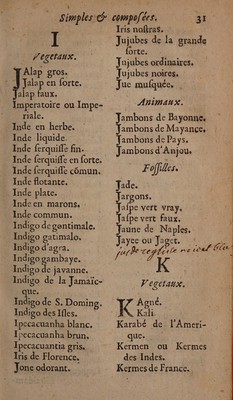 Simples & composées. 31
I
Vegetaux.
JAlap gros.
Jalap en sorte.
Jalap faux.
Imperatoire ou Impe-
riale.
Inde en herbe.
Inde liquide
Inde serquisse fin.
Inde serquisse en sorte.
Inde serquisse cõmun.
Inde flotante.
Inde plate.
Inde en marons.
Inde commun.
Indigo de gantimale.
Indigo gatimalo.
Indigo d'agra.
Indigo gambaye.
Indigo de javanne.
Indigo de la Jamaïc-
que.
Indigo de S. Doming.
Indigo des Isles.
Ipecacuanha blanc.
Ipecacuanha brun.
Ipecacuantia gris.
Iris de Florence.
Jone odorant.
Iris nostras.
Jujubes de la grande
sorte.
Jujubes ordinaires.
Jujubes noires.
Jue musquée.
Animaux.
Jambons de Bayonne.
Jambons de Mayance.
Jambons de Pays.
Jambons d'Anjou.
Fossiles.
Jade.
Jargons.
Jaspe vert vray.
Jaspe vert faux.
Jaune de Naples.
Jayet ou Jaget.
jus de reglisse
K
Vegetaux.
KAgné.
Kali.
Karabé de l'Ameri-
que.
Kermen ou Kermes
des Indes.
Kermes de France.